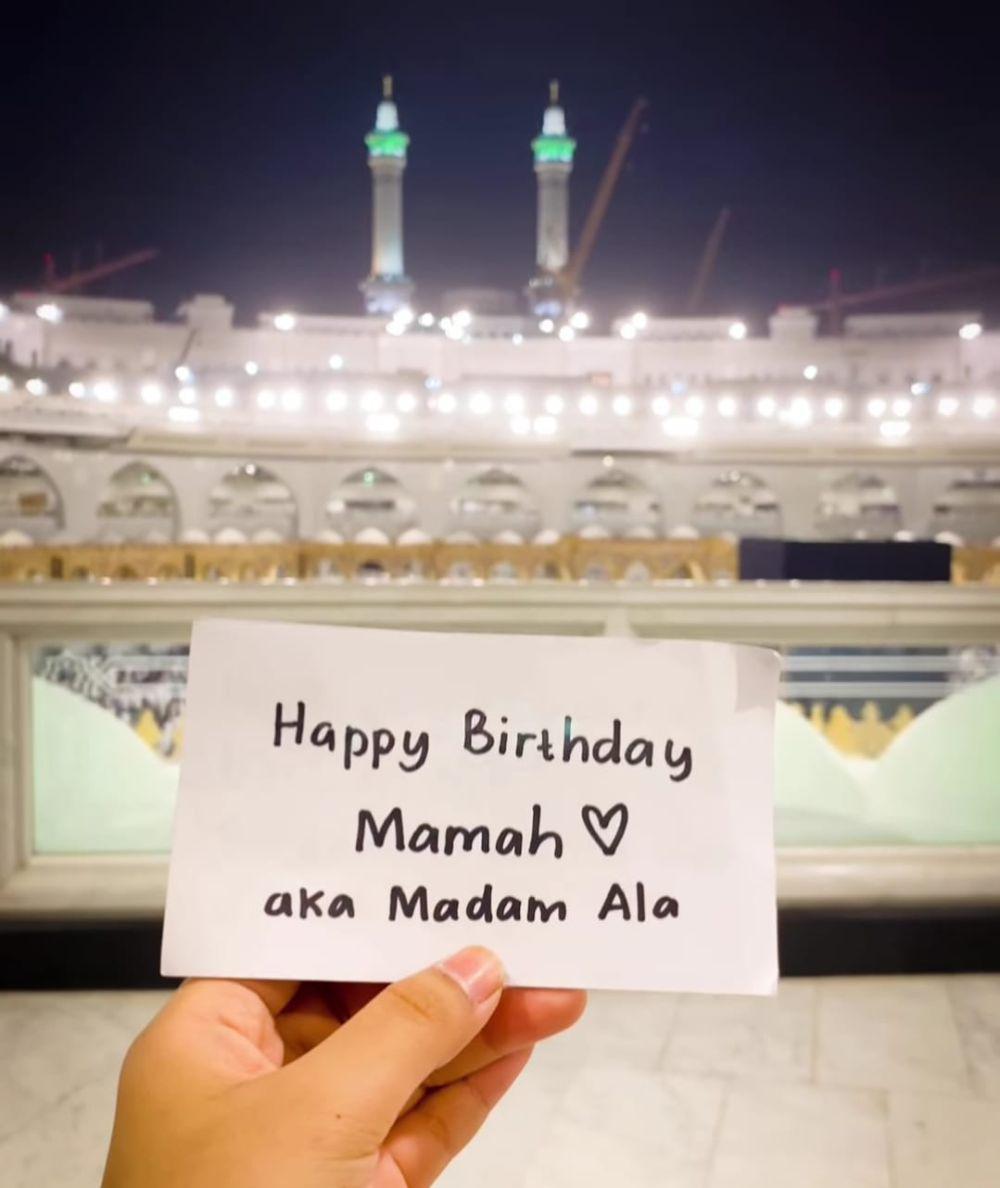 Happy Birthday
Mamah ♡
aka Madam Ala